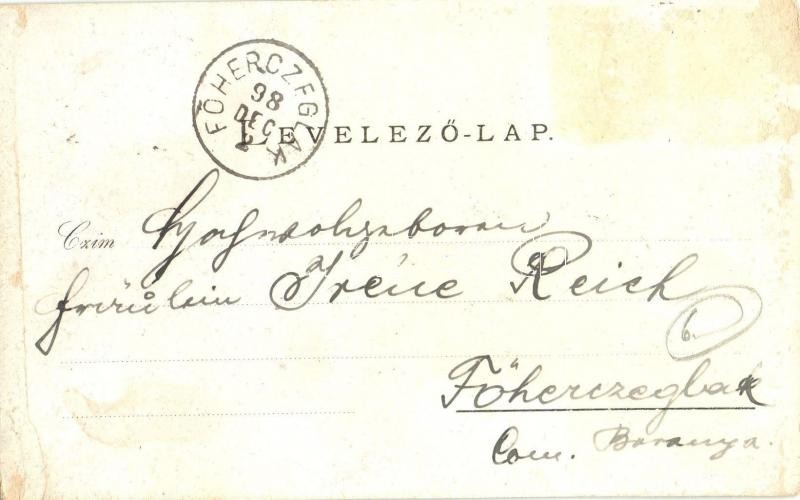 FŐHERCZEGLAK
98
DEC
2
LEVELEZŐ-LAP.
Czim Hochwohlgeboren
Fräulein Iréne Reich
6.
Főherczeglak
Com. Baranya.